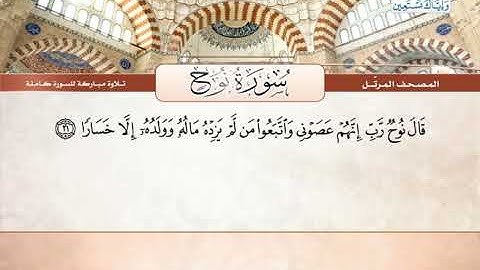 وَإِيَّاكَ نَسْتَعِينُ
المصحف المرتّل
سُورَةُ نُوحٍ
تلاوة مباركة للسورة كاملة
قَالَ نُوحٌ رَّبِّ إِنَّهُمْ عَصَوْنِي وَاتَّبَعُوا مَن لَّمْ يَزِدْهُ مَالُهُ وَوَلَدُهُ إِلَّا خَسَارًا ﴿٢١﴾